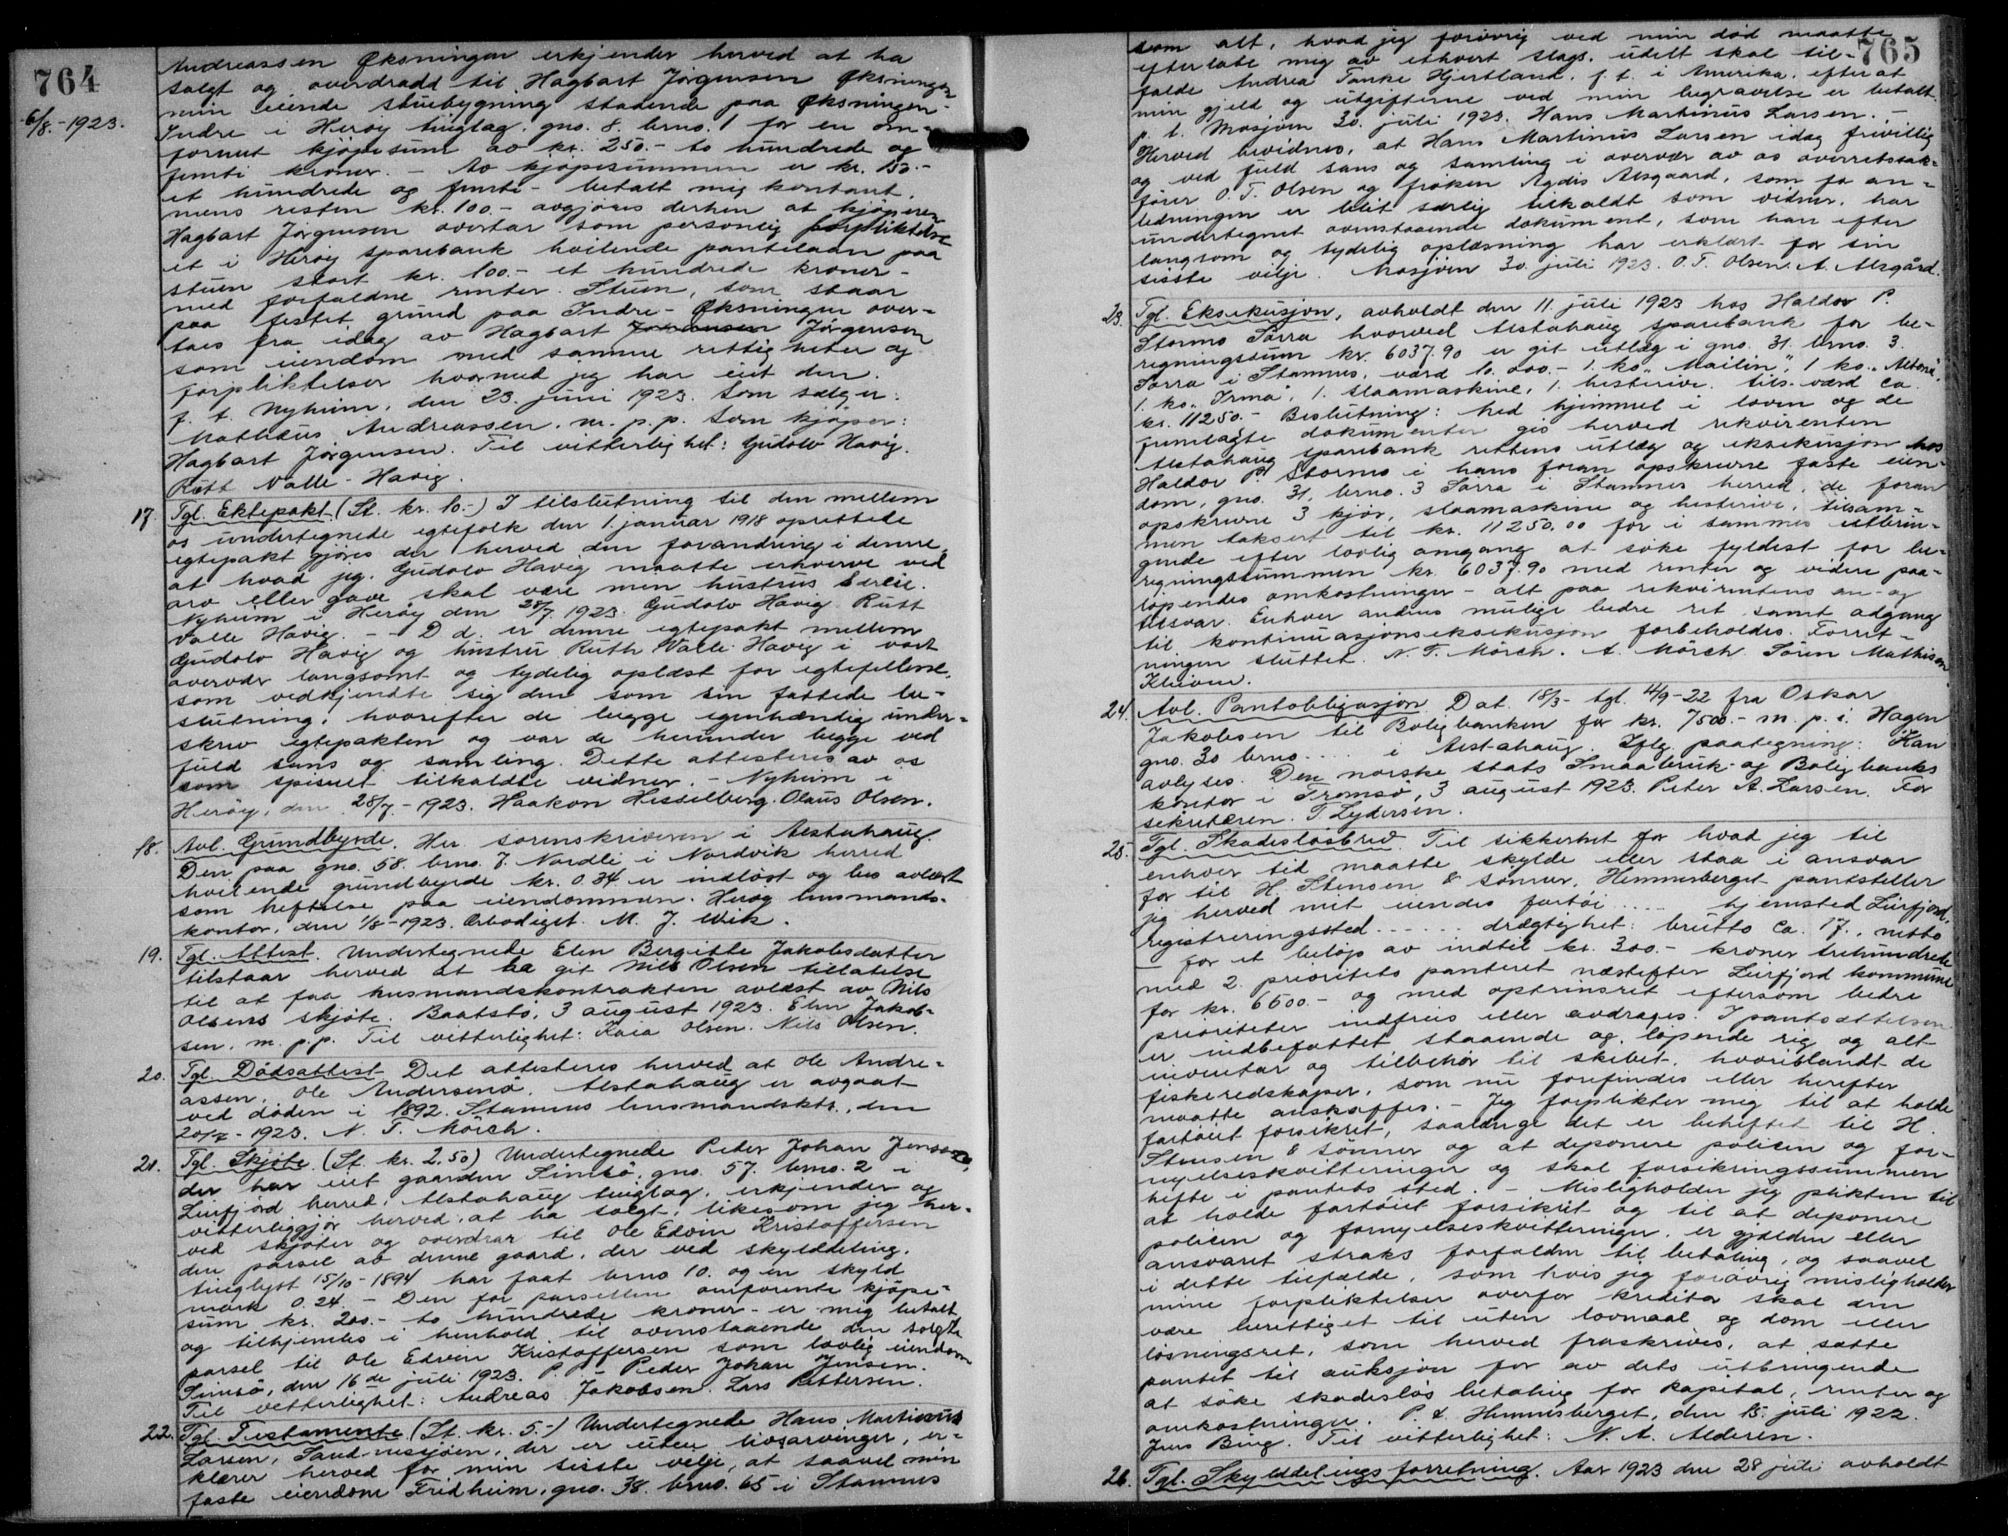 764
6/8.-1923.
Andreassen Øksningen erkjender herved at ha
solgt og overdradd til Hagbart Jørgensen Øksningen
min eiende stuebygning staaende paa Øksningen
Indre i Herøy tinglag, gno. 8. brno. 1 for en om-
forenet kjøpesum av kr. 250.- to hundrede og
femti kroner. - Av kjøpesummen er kr. 150.-
et hundrede og femti - betalt mig kontant,
mens resten kr. 100.- avgjøres derhen at kjøperen
Hagbart Jørgensen overtar som personlig forpliktelse
et i Herøy sparebank hvilende pantelaan paa
stuen stort kr. 100.- et hundrede kroner -
med forfaldne renter. Stuen, som staar
paa festet grund paa Indre - Øksningen over-
taes fra idag av Hagbart Jørgensen
som eiendom med samme rettigheter og
forpliktelser hvormed jeg har eiet den.
p. t. Nyheim, den 23. juni 1923. Som sælger:
Mathæus Andreassen. m. p. p. Som kjøper:
Hagbart Jørgensen. Til vitterlighet: Gudolv Havig.
Rutt Valle - Havig.
17. Tgl. Ektepakt. (St. kr. 10.-) I tilslutning til den mellem
os undertegnede egtefolk den 1. januar 1918 oprettede
egtepakt gjøres der herved den forandring i denne,
at hvad jeg, Gudolv Havig maatte erhverve ved
arv eller gave skal være min hustrus særeie.
Nyheim i Herøy den 28/7 1923. Gudolv Havig. Rutt
Valle Havig. - - D d. er denne egtepakt mellem
Gudolv Havig og hustru Ruth Valle Havig i vort
overvær langsomt og tydelig oplæst for egtefellene,
som vedkjendte sig den som sin fattede be-
slutning, hvorefter de begge egenhændig under-
skrev egtepakten og var de herunder begge ved
fuld sans og samling. Dette attesteres av os
som spesielt tilkaldte vidner. - Nyheim i
Herøy, den 28/7 - 1923. Haakon Hesselberg. Olaus Olsen.
18. Avl. Grundbyrde. Her sorenskriveren i Alstahaug.
Den paa gno. 58. brno. 7. Nordli i Nordvik herred
hvilende grundbyrde kr. 0.34 er indløst og bes avlæst
som heftelse paa eiendommen. Herøy lensmands-
kontor, den 1/8-1923. Ærbødigst. M. J. Wik.
19. Tgl. Attest. Undertegnede Elen Bergitte Jakobsdatter
tilstaar herved at ha git Nils Olsen tillatelse
til at faa husmandskontrakten avlæst av Nils
Olsens skjøte. Baatstø, 3 august 1923. Elen Jakob-
sen. m. p.p. Til vitterlighet: Kaia Olsen. Nils Olsen.
20. Tgl. Dødsattest. Det attesteres herved at Ole Andre-
assen, Ole Andersenø, Alstahaug er avgaat
ved døden i 1892. Stamnes lensmandsktr., den
20/7 - 1923. N. T. Mørch.
21. Tgl. Skjøte. (St. kr. 2.50) Undertegnede Peder Johan Jenssen,
der har eiet gaarden Simsø, gno. 57. brno. 2 i
Leirfjord herred, Alstahaug tinglag, erkjender og
vitterliggjør herved, at ha solgt, likesom jeg her-
ved skjøter og overdrar til Ole Edvin Kristoffersen
den parsel av denne gaard, der ved skylddeling,
tinglyst 15/10-1894 har faat brno 10. og en skyld
mark 0.24. - Den for parsellen omforente kjøpe-
sum kr. 200.- to hundrede kroner - er mig betalt
og tilhjemles i henhold til ovenstaaende den solgte
parsel til Ole Edvin Kristoffersen som lovlig eiendom
Simsø, den 16 de juli 1923. Peder Johan Jensen.
Til vetterlighet: Andreas Jakobsen. Lars Pettersen.
22. Tgl. Testamente. (St. kr. 5.-) Undertegnede Hans Martinus
Larsen, Sandnessjøen, der er uten livsarvinger, er-
klærer herved for min sisste velje, at saavel min
faste eiendom Fredheim, gno. 38. brno. 65 i Stamnes
765
som alt, hvad jeg forøvrig ved min død maatte
efterlate meg av ethvert slags, udelt skal til-
falde Andrea Tanke Hjertland, f. t. i Amerika, efterat
min gjeld og utgifterne ved min begravelse er betalt.
p. t. Mosjøen 30. juli 1923. Hans Martinus Larsen. -
Herved bevidnes, at Hans Martinus Larsen idag frivillig
og ved fuld sans og samling i overvær av os overretssak-
fører O. T. Olsen og frøken Agdis Alsgaard, som fo an-
ledningen er blit særlig tilkaldt som vidner, har
undertegnet ovenstaaende dokument, som han efter
langsom og tydelig oplæsning har erklært for sin
sisste vilje. Mosjøen 30. juli 1923. O. T. Olsen. A. Alsgård.
23. Tgl. Eksekusjon, avholdt den 11. juli 1923 hos Haldor P.
Stormo Sørra hvorved Alstahaug sparebank for be-
regningssum kr. 6037.90 er git utlæg i gno. 31. brno. 3.
Sørra i Stamnes, værd 10.000.- 1. ko „Mailin“, 1 ko „Altena“,
1. ko „Irma“, 1. slaamaskine, 1. hesterive. tils. værd ca.
kr. 11250.- Beslutning: Med hjemmel i loven og de
fremlagte dokumenter gis herved rekvirenten
Alstahaug sparebank rettens utlæg og eksekusjon hos
Haldor P. Stormo i hans foran opskrevne faste eien-
dom, gno. 31, brno. 3 Sørra i Stamnes herred, de foran
opskrevne 3 kjør, slaamaskine og hesterive, tilsam-
men taksert til kr. 11250.00 for i sammes utbrin-
gende efter lovlig omgang at søke fyldest for be-
regningssummen kr. 6037.90 med renter og videre paa-
løpendes omkostninger - alt paa rekvirentens an- og
tilsvar. Enhver andens mulige bedre ret samt adgang
til kontinuasjonseksekusjon forbeholdes. Forret-
ningen sluttet. N. T. Mørch. A. Mørch. Søren Mathisen
Kleiven.
24. Avl. Pantobligasjon. Dat. 18/3- tgl. 4/9-22 fra Oskar
Jakobsen til Boligbanken for kr. 7500.- m. p. i. Hagen
gno. 30 brno.... i Alstahaug. Iflg. paategning: Kan
avlyses. Den norske stats Smaabruk- og Boligbanks
kontor i Tromsø, 3 august 1923. Peter A. Larsen. For
sekretæren. T. Lydersen.
25. Tgl. Skadesløsbrev. Til sikkerhet for hvad jeg til
enhver tid maatte skylde eller staa i ansvar
for til H. Stensen & sønner, Hemnesberget pantstiller
jeg herved mit eiendes fartøi ..... hjemsted Leirfjord,
registreringssted ...... drægtighet: brutto ca. 17., netto
- for et beløp av indtil kr. 300.- kroner trehundrede
med 2. prioritets panteret næstefter Leirfjord kommune
for kr. 6500.- og med optrinsret eftersom bedre
prioriteter indfries eller avdrages. I pantsættelsen
er indbefattet staaende og løpende rig og alt
inventar og tilbehør til skibet, hvoriblandt de
fiskeredskaper, som nu forefindes eller herefter
maatte anskaffes. - Jeg forplikter meg til at holde
fartøiet forsikret, saalænge det er beheftet til H.
Stensen & sønner og at deponere policen og for-
nyelseskvitteringer og skal forsikringssummen
hefte i pantets sted. - Misligholder jeg plikten til
at holde fartøiet forsikret og til at deponere
policen og fornyelseskvitteringer, er gjælden eller
ansvaret straks forfalden til betaling, og saavel
i dette tilfælde, som hvis jeg forøvrig misligholder
mine forpliktelser overfor kreditor skal den
være berettiget til uten lovmaal og dom eller
løsningsret, som herved fraskrives, at sætte
pantet til auksjon for av dets utbringende
at søke skadesløs betaling for kapital, renter og
omkostninger. P. t. Hemnesberget, den 15. juli 1922.
Jens Bing. Til vitterlighet: N. A. Alderen.
26. Tgl. Skylddelingsforretning. Aar 1923 den 28 juli avholdt